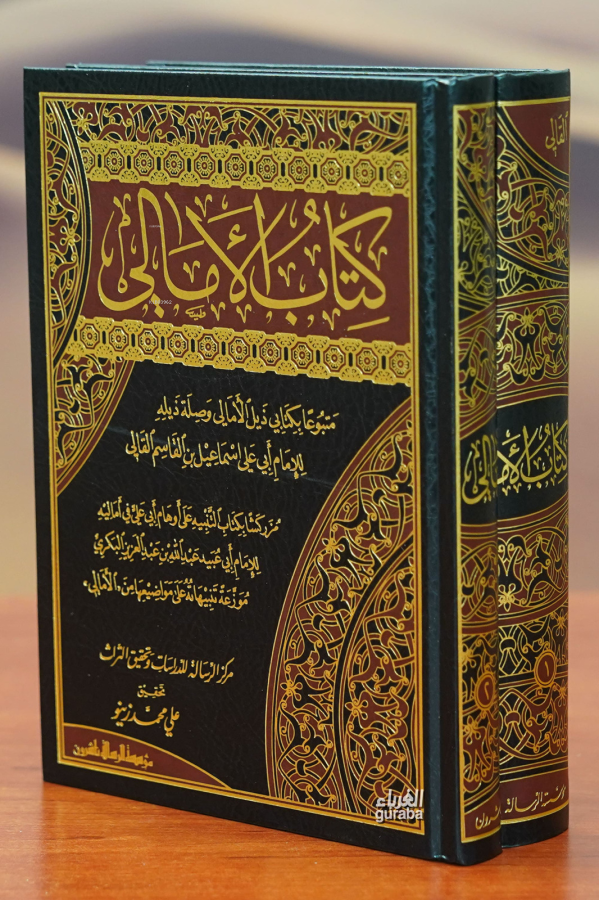 كِتَابُ الأَمَالِي
مَتْبُوعًا بِكِتَابَي ذَيلِ الأَمَالِي وَصِلَة ذَيلِهِ
لِلإِمَامِ أَبِي عَلِي إِسْمَاعِيْل بن القَاسِم القَالِي
مُزَركَشًا بِكِتَابِ التَّنْبِيهِ عَلَى أَوهَامِ أَبِي عَلِيّ فِي أَمَالِيهِ
لِلإِمَامِ أَبِي عُبَيد عَبد اللهِ بن عَبدِ العَزِيزِ البَكرِيّ
مُوَزَّعَةً تَنبِيهَاتُهُ عَلَى مَوَاضِيعِهَا مِنَ «الأَمَالِي»
مركز الرسالة للدراسات وتحقيق التراث
تحقيق
علي محمد زينو
مؤسسة الرسالة ناشرون
الغرباء
guraba
كتاب الأمالي
٢
شرون
القالي
كتاب الأمالي
١
مؤسسة الرسالة